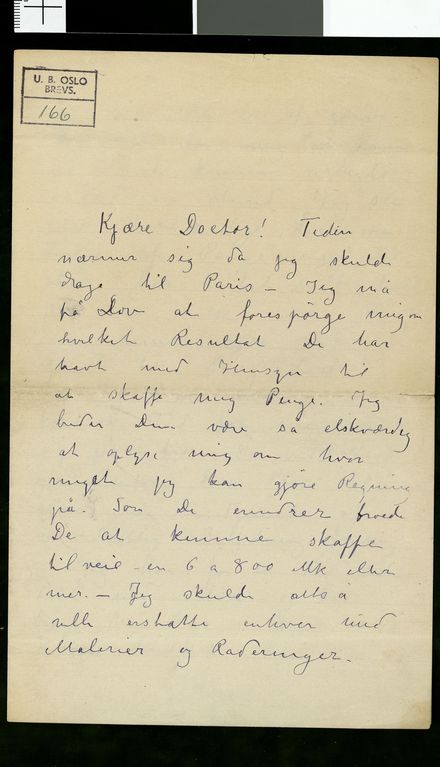 U. B. OSLO
BREVS.
166
Kjære Doctor! Tiden
nærmer sig da jeg skulde
drage til Paris – Jeg må
få Lov at forespörge mig om
hvilket Resultat De har
havt med Hensyn til
at skaffe mig Penge. Jeg
beder Dem være så elskværdig
at oplyse mig om hvor
meget jeg kan gjöre Regning
på. Som De erindrer troede
De at kunne skaffe
tilveie en 6 a 800 Mk eller
mer. – Jeg skulde altså
ville erstatte enhver med
Malerier og Raderinger.